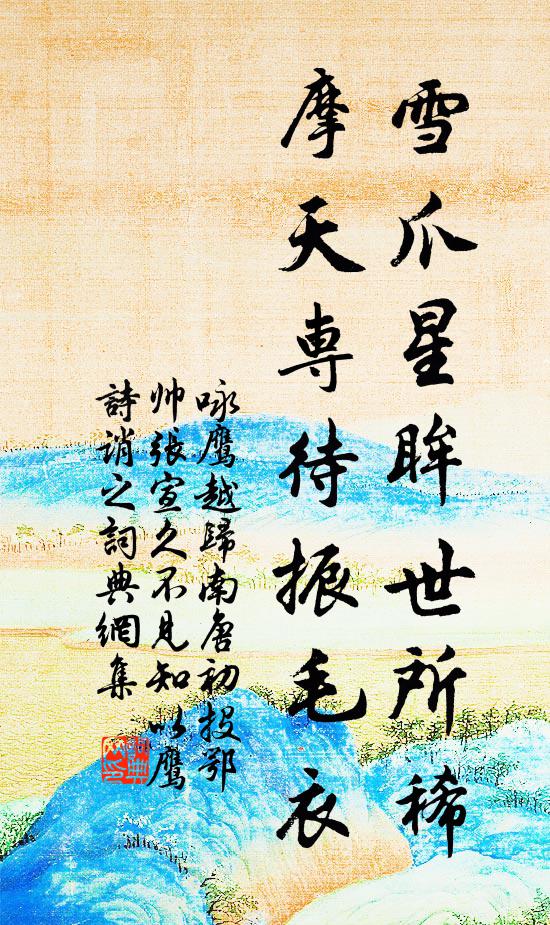 雪爪星眸世所稀
摩天専待振毛衣
咏鹰越歸南唐初投鄂
帅張宣久不見知以鹰
詩誚之詞典網集